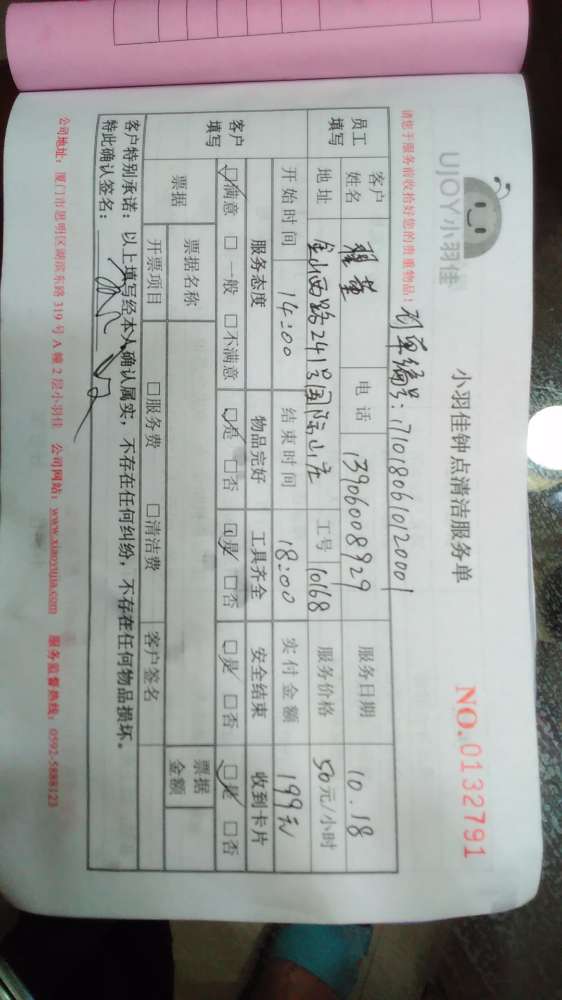 UJOY小羽佳
小羽佳钟点清洁服务单
NO.0132791
请您于服务前收拾好您的贵重物品! 订单编号:7101806101020001
员工填写 客户姓名 电话 13906008929 服务日期 10.18
地址 金山西路241号国际山庄 工号 10168 服务价格 50元/小时
开始时间 14:00 结束时间 18:00 实付金额 199元
客户填写 服务态度 物品完好 工具齐全 安全结束 收到卡片
☑满意 □一般 □不满意 ☑是 □否 ☑是 □否 ☑是 □否 ☑是 □否
票据 票据名称 票据金额
开票项目 □服务费 □清洁费 客户签名
客户特别承诺:以上填写经本人确认属实,不存在任何纠纷,不存在任何物品损坏。
特此确认签名:
公司地址:厦门市思明区湖滨东路319号A幢2层小羽佳 公司网站:www.xiaoyujia.com 服务监督热线:0592-5888123